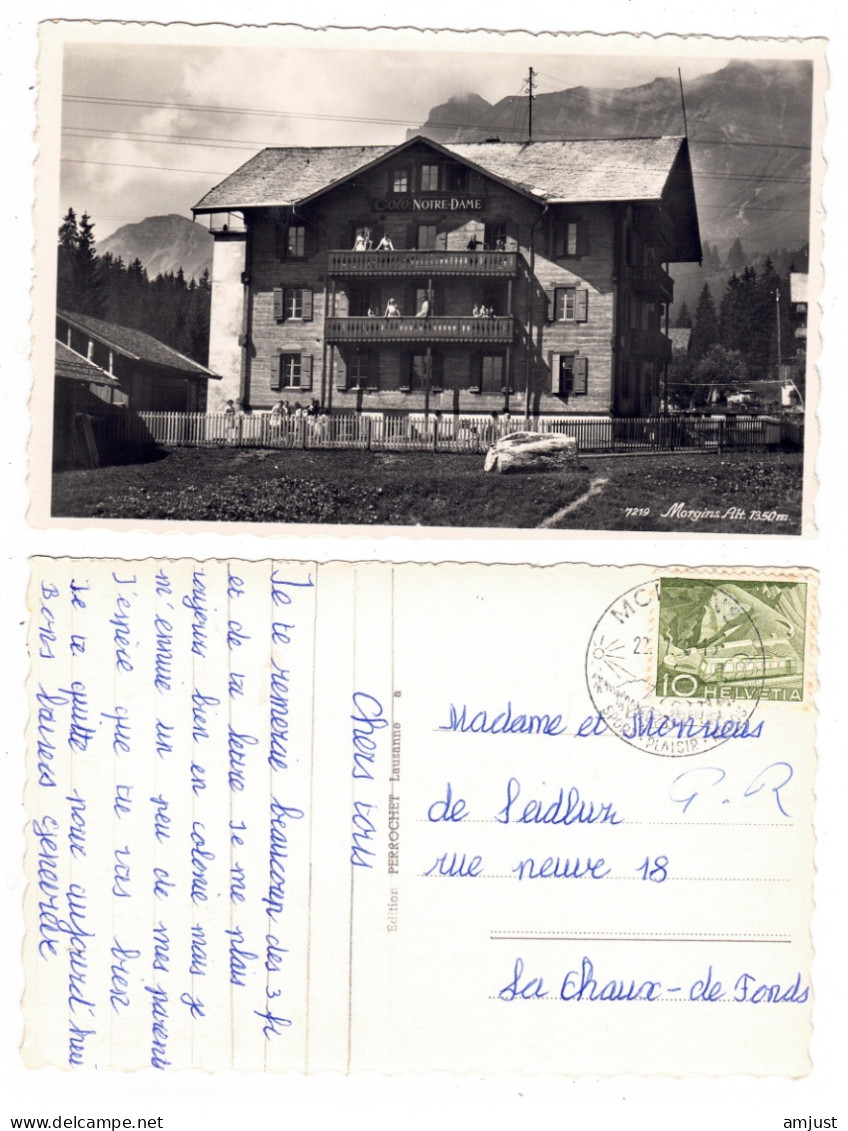 Colo. NOTRE-DAME
7219 Morgins Alt. 1350m.
Chers vous
Je te remercie beaucoup des 3 fr
et de ta lettre Je me plais
toujours bien en colonie mais je
m'ennuie un peu de mes parents
J'espère que tu vas bien
Je te quitte pour aujourd'hui
Bons baisers Geneviève
Edition PERROCHET Lausanne a
MO
22.
SPORT PLAISIR
10 HELVETIA
Madame et Monsieur
P. R
rue neuve 18
La Chaux-de Fonds
delcampe.net
amjust